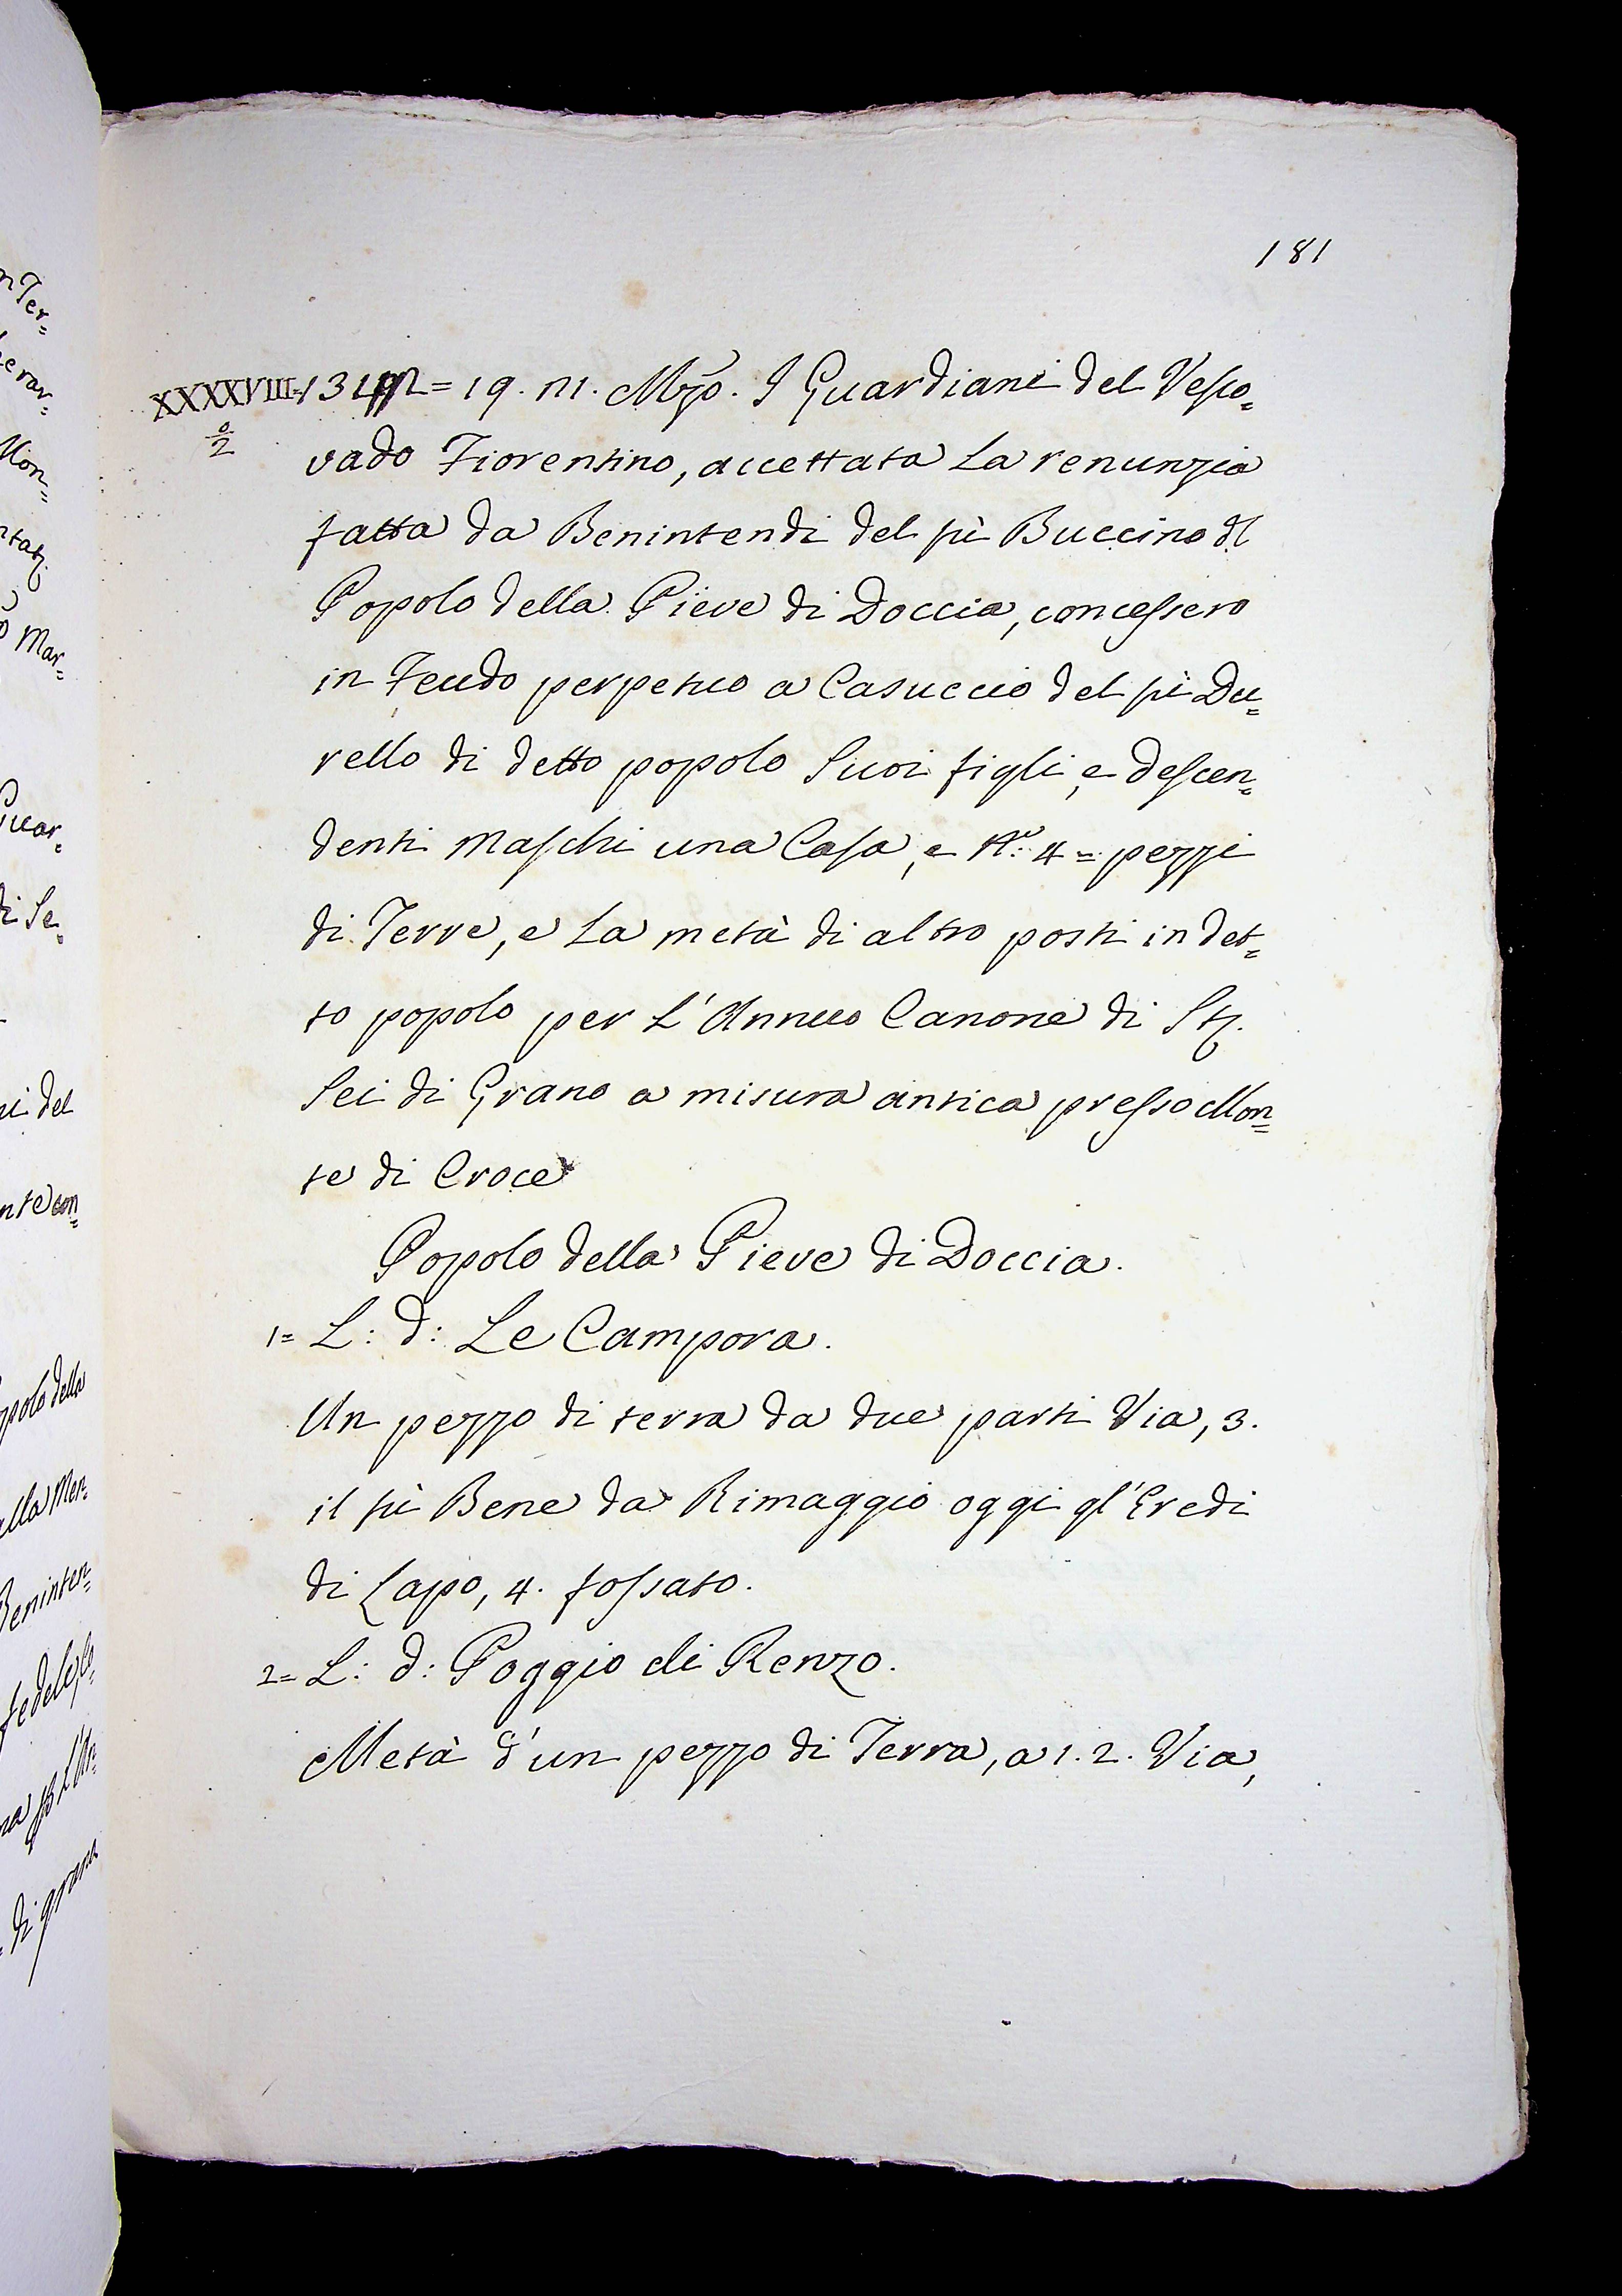 181
XXXXVIII = 19. m. Mzo. I Guardiani del Vesco=
o/2
vado Fiorentino, accettata La renunzia
fatta da Benintendi del fù Buccino dl
Popolo della Pieve di Doccia, concessero
in Feudo perpetuo a Casuccio del fù Du=
rello di detto popolo Suoi figli, e descen=
denti Maschi una Casa, e No: 4 = pezzi
di Terre, e La metà di altro posti in det=
to popolo per L'Annuo Canone di Sta
Sei di Grano a misura antica presso Mon=
te di Croce
Popolo della Pieve di Doccia.
1= L: d: Le Campora.
Un pezzo di terra da due parti Via, 3.
il fù Bene da Rimaggio oggi gl'Eredi
di Lapo, 4. fossato.
2= L: d: Poggio di Renzo.
Metà d'un pezzo di Terra, a 1. 2. Via,